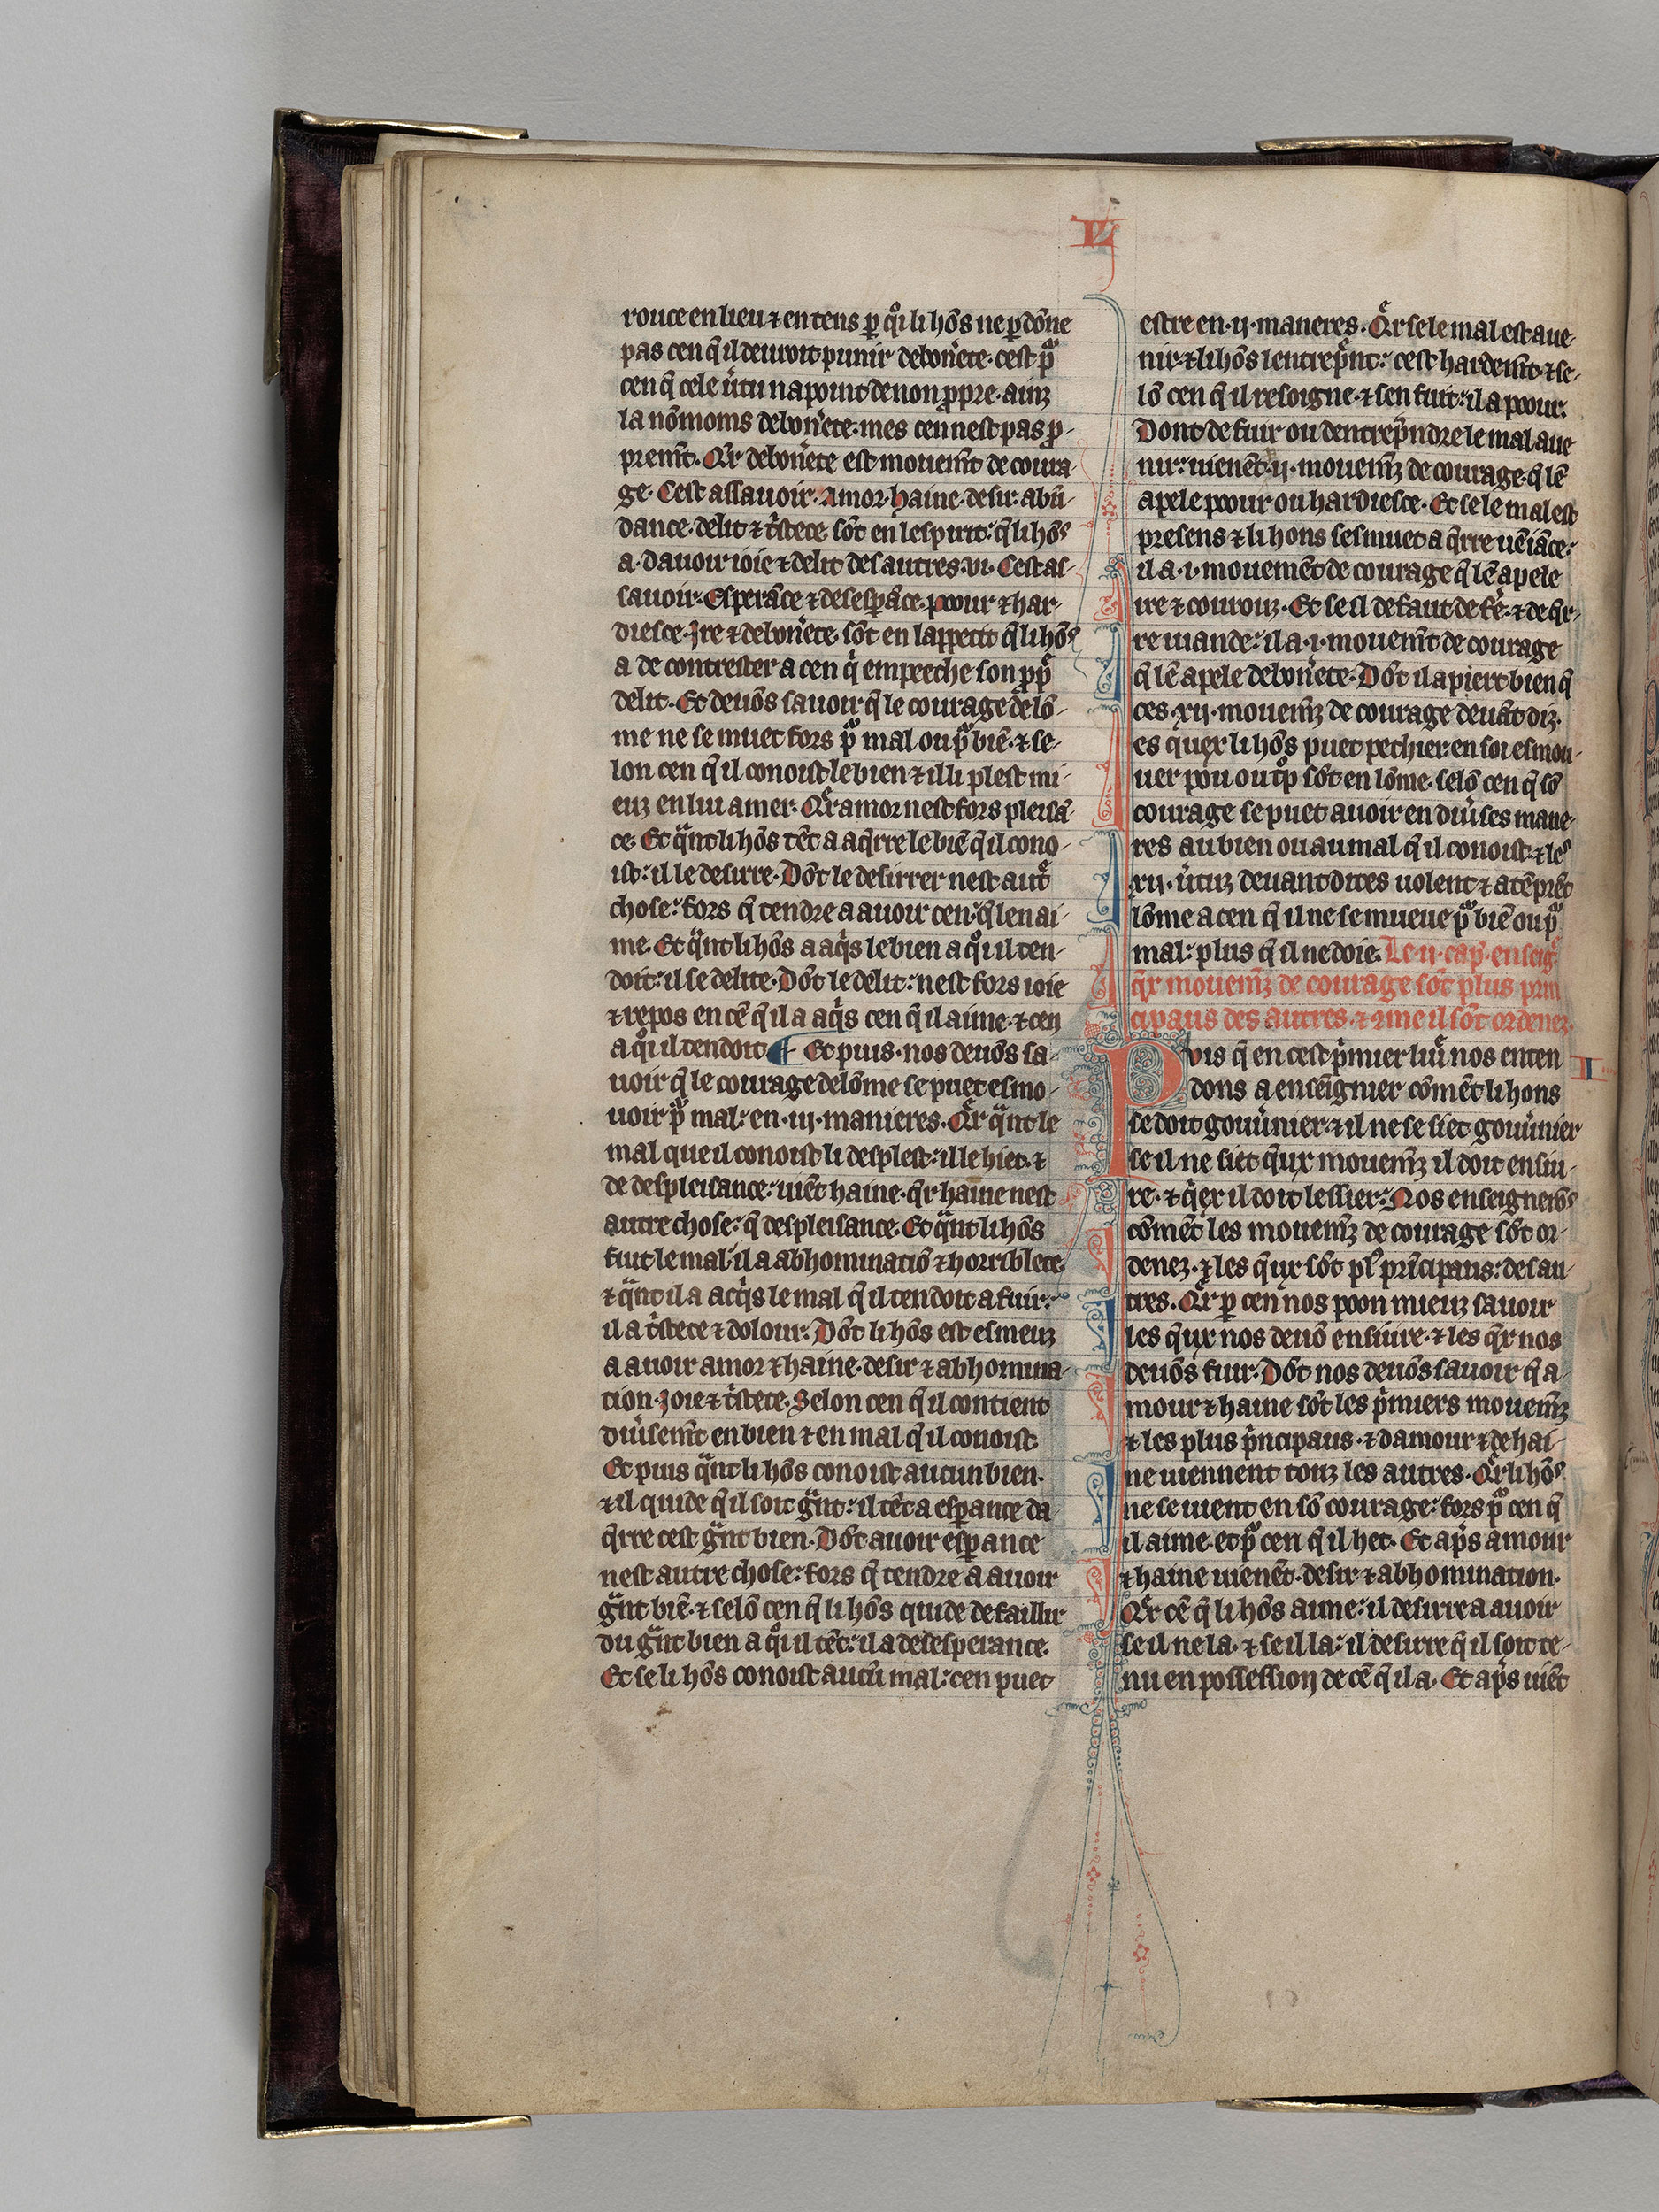 L
rouce en lieu ⁊ en tens ꝑ qͦi li hōs ne ꝑdōne
pas cen q̄ il deuroit punir debonˀete. cest pͬ
cen q̄ cele ũtu na point de non ꝓpre. ainz
la nōmoms debonˀete. mes cen nest pas ꝓ-
premt̄. Qͣr debonˀete est mouemt̄ de coura
ge. Cest assauoir. Amor. haine. desir. abū-
dance. delit ⁊ tⁱstece sōt en lesperit: q̄ li hōs
a. dauoir ioie ⁊ delit des autres .vi. Cest as-
sauoir. Esperāce ⁊ desesꝑāce. poour ⁊ har-
diesce. Ire ⁊ debonˀete. sōt en lappetit q̄ li hōs
a de contrester a cen qⁱ empeeche son ꝓpͤ
delit. Et deuōs sauoir q̄ le courage de lō-
me ne se muet fors pͬ mal ou pͬ biē. ⁊ se-
lon cen q̄ il conoist le bien ⁊ il li plest mi-
euz en lui amer. Qͣr amor nest fors pleisā-
ce. Et qͣnt li hōs tēt a aqrre le biē q̄ il cono-
ist: il le desirre. Dōt le desirrer nest autͤ
chose: fors q̄ tendre a auoir cen: q̄ len ai-
me. Et qͣnt li hōs a aqⁱs le bien a qͦi il ten-
doit: il se delite. Dōt le delit: nest fors ioie
⁊ repos en cē q̄ il a aqⁱs cen q̄ il aime. ⁊ cen
a qͦi il tendoit ¶ Et puis. nos deuōs sa-
uoir q̄ le courage de lōme se puet esmo-
uoir pͬ mal: en .iij. manieres. Qͣr qͣnt le
mal que il conoist li desplest: il le hiet. ⁊
de despleisance: uiēt haine. qͣr haine nest
autre chose: q̄ despleisance. Et qͣnt li hōs
fuit le mal: il a abhominatiō ⁊ horriblete.
⁊ qͣnt il a acqⁱs le mal q̄ il tendoit a fuir:
il a tⁱstece ⁊ dolour. Dōt li hōs est esmeuz
a auoir amor ⁊ haine. desir ⁊ abhomina-
cion. Joie ⁊ tⁱstece. Selon cen q̄ il contient
diuˀsemt̄ en bien ⁊ en mal q̄ il conoist.
Et puis qͣnt li hōs conoist aucun bien.
⁊ il quide q̄ il soit gͣnt: il tēt a esꝑance da
qrre cest gͣnt bien. Dōt auoir esꝑance
nest autre chose: fors q̄ tendre a auoir
gͣnt biē. ⁊ selō cen q̄ li hōs quide defaillir
du gͣnt bien a qͦi il tēt: il a desesperance.
Et se li hōs conoist aucū mal: cen puet
estre en .ij. maneres. Qͣr se le mal est aue-
nir. ⁊ li hōs lentrepͤnt: cest hardemt̄. ⁊ se-
lō cen q̄ il resoigne. ⁊ sen fuit: il a poour.
Dont de fuir ou dentrepͤndre le mal aue
nir: uienēt .ij. mouemz̄ de courage. q̄ lē
apele poour ou hardiesce. Et se le mal est
presens ⁊ li hons sesmuet a qrre uēiāce:
il a .i. mouemēt de courage q̄ lē apele
ire ⁊ courouz. Et se il defaut de fēˀ. ⁊ de qr-
re uiande: il a .i. mouemt̄ de courage
q̄ lē apele debonˀete. Dōt il apiert bien q̄
ces .xij. mouemz̄ de courage deuāt diz.
es quex li hōs puet pechier: en soi esmou-
uer pou ou tͦp sōt en lōme. selō cen q̄ sō
courage se puet auoir en diuˀses mane-
res au bien ou au mal q̄ il conoist. ⁊ les
xij. ũtuz deuant dites uolent ⁊ atēpͤēt
lōme a cen q̄ il ne se mueue pͬ biē ou pͬ
mal: plus q̄ il ne doie. Le .ij. cap̄. enseigͤ
qͣx mouemz̄ de courage sōt plus prin
cipaus des autres. ⁊ ꝯme il sōt ordenez.
Puis q̄ en cest pⁱmier liuͤ nos enten
dons a enseignier cōmēt li hons
se doit gouũnier. ⁊ il ne se siet gouũnier
se il ne siet q̄ux mouemz̄ il doit ensiu-
re. ⁊ qͣex il doit lessier: Nos enseignerōs
cōmēt les mouemz̄ de courage sōt or-
denez. ⁊ les q̄ux sōt plˀ pⁱncipaus: des au-
tres. Qͣr ꝑ cen nos poon mieuz sauoir
les q̄ux nos deuō ensiure. ⁊ les qͣx nos
deuōs fuir. Dōt nos deuōs sauoir q̄ a-
mour ⁊ haine sōt les pⁱmiers mouemz̄
⁊ les plus pⁱncipaus. ⁊ damour ⁊ de hai-
ne uiennent touz les autres. Qͣr li hōs
ne se uient en sō courage: fors pͬ cen q̄
il aime. et pͬ cen q̄ il het. Et apͤs amour
⁊ haine uienēt. desir ⁊ abhomination.
Qͣr cē q̄ li hōs aime: il desirre a auoir
se il ne la. ⁊ se il la: il desirre q̄ il soit te-
nu en possession de cē q̄ il a. Et apͤs uiēt
II